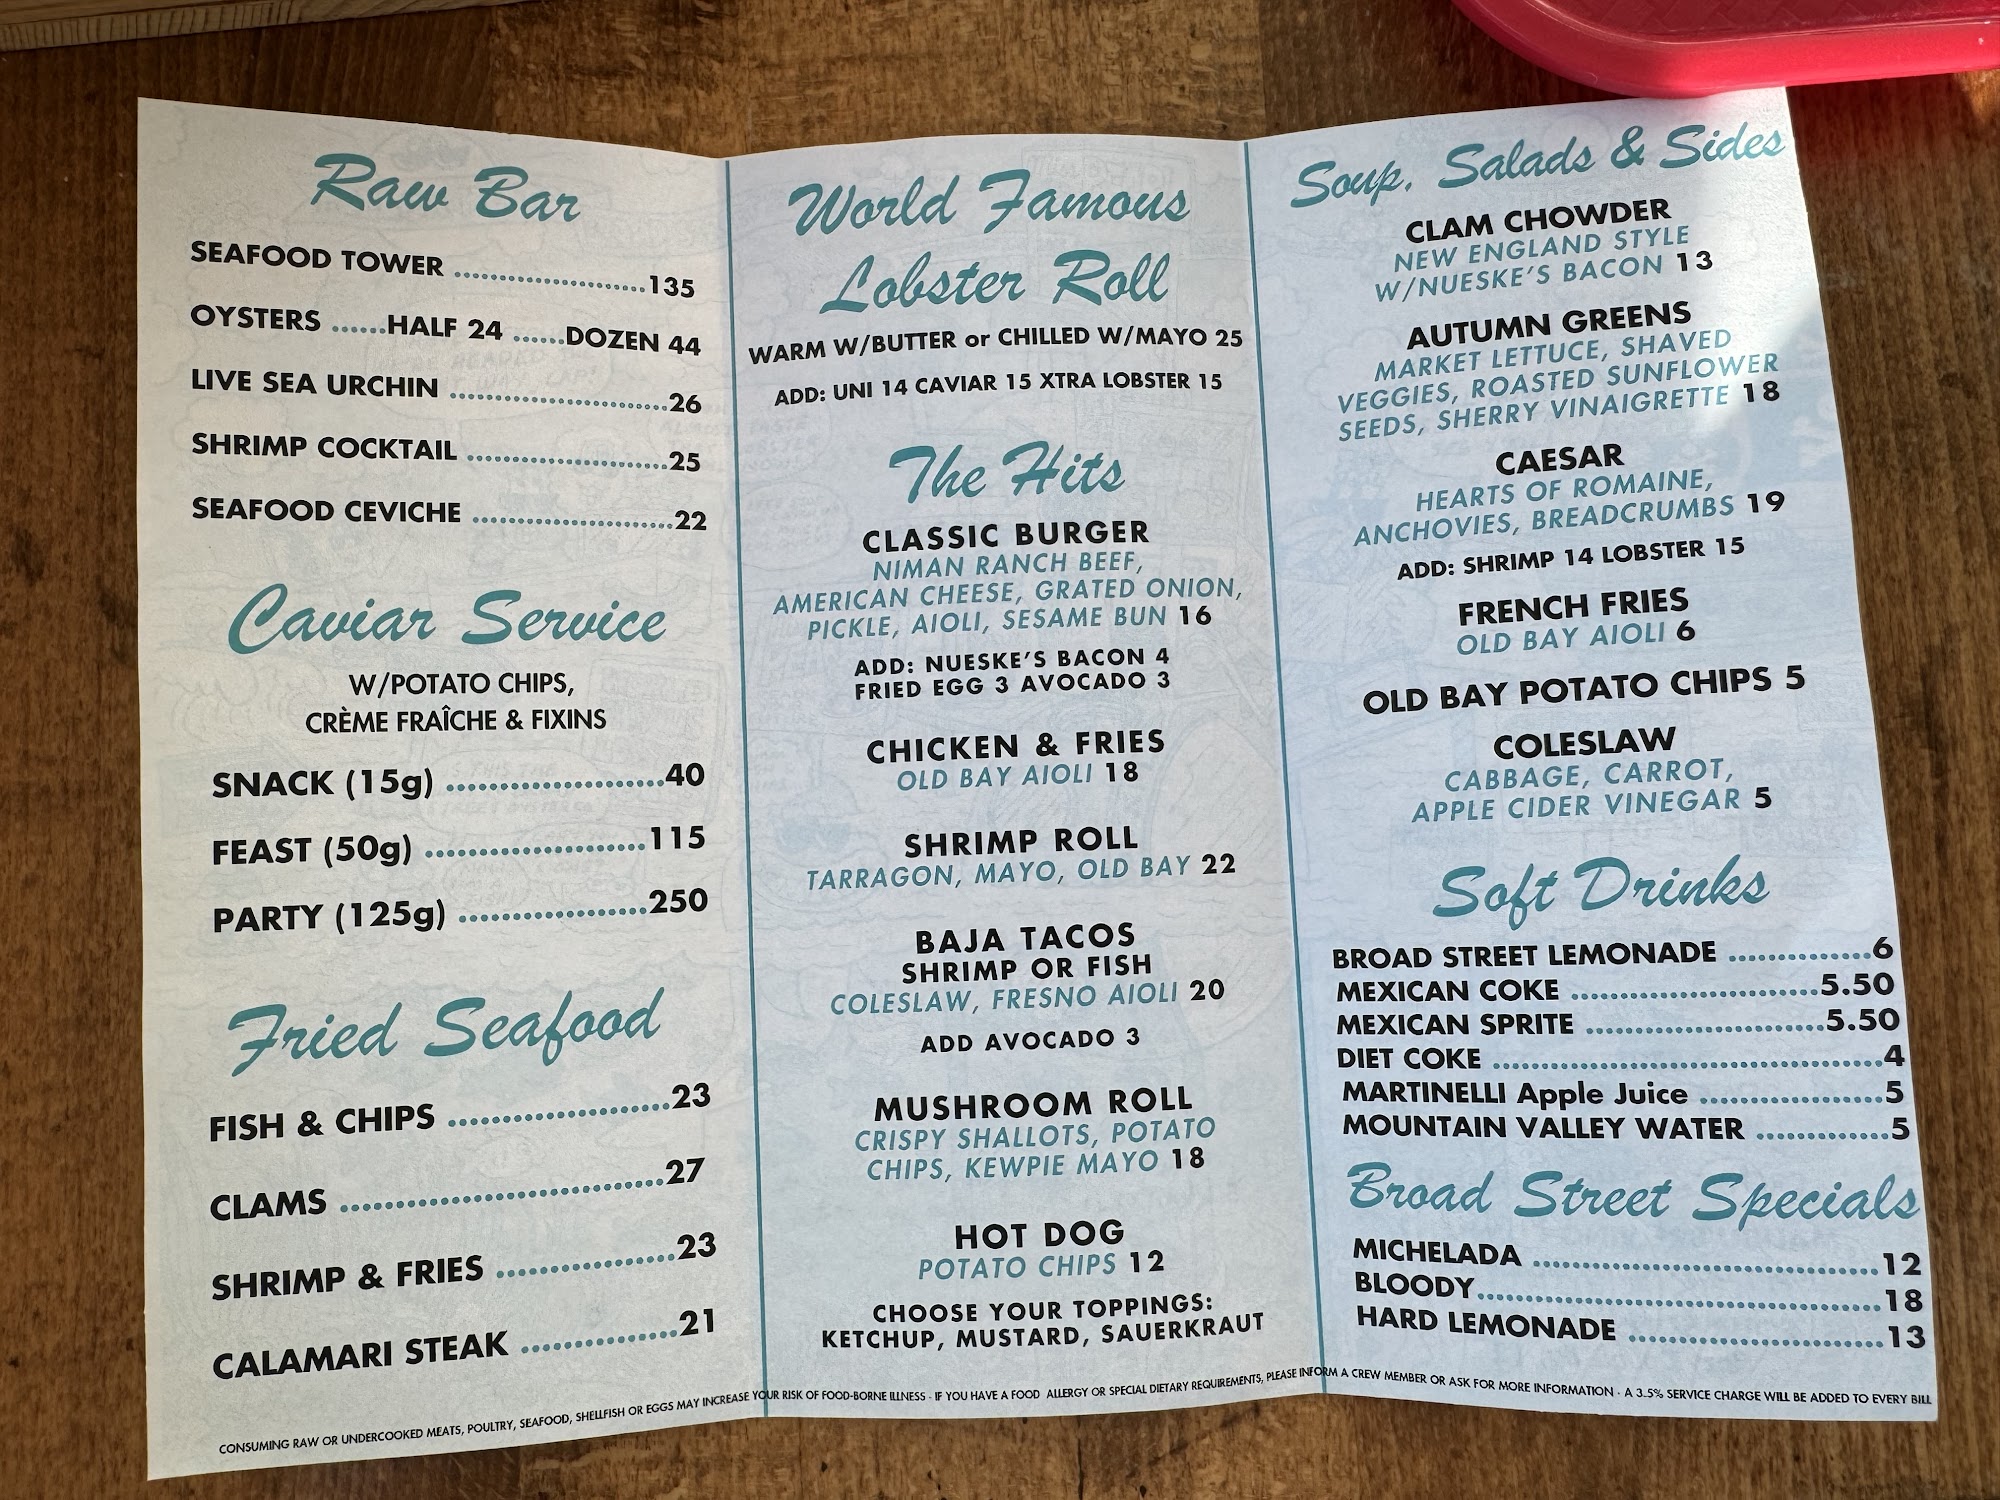 Raw Bar
SEAFOOD TOWER ........................135
OYSTERS ......HALF 24 ......DOZEN 44
LIVE SEA URCHIN ...........................26
SHRIMP COCKTAIL .........................25
SEAFOOD CEVICHE .........................22
Caviar Service
W/POTATO CHIPS,
CRÈME FRAÎCHE & FIXINS
SNACK (15g) .........................40
FEAST (50g) .........................115
PARTY (125g) .....................250
Fried Seafood
FISH & CHIPS .........................23
CLAMS ....................................27
SHRIMP & FRIES ....................23
CALAMARI STEAK .................21
World Famous
Lobster Roll
WARM W/BUTTER or CHILLED W/MAYO 25
ADD: UNI 14 CAVIAR 15 XTRA LOBSTER 15
The Hits
CLASSIC BURGER
NIMAN RANCH BEEF,
AMERICAN CHEESE, GRATED ONION,
PICKLE, AIOLI, SESAME BUN 16
ADD: NUESKE'S BACON 4
FRIED EGG 3 AVOCADO 3
CHICKEN & FRIES
OLD BAY AIOLI 18
SHRIMP ROLL
TARRAGON, MAYO, OLD BAY 22
BAJA TACOS
SHRIMP OR FISH
COLESLAW, FRESNO AIOLI 20
ADD AVOCADO 3
MUSHROOM ROLL
CRISPY SHALLOTS, POTATO
CHIPS, KEWPIE MAYO 18
HOT DOG
POTATO CHIPS 12
CHOOSE YOUR TOPPINGS:
KETCHUP, MUSTARD, SAUERKRAUT
Soup, Salads & Sides
CLAM CHOWDER
NEW ENGLAND STYLE
W/NUESKE'S BACON 13
AUTUMN GREENS
MARKET LETTUCE, SHAVED
VEGGIES, ROASTED SUNFLOWER
SEEDS, SHERRY VINAIGRETTE 18
CAESAR
HEARTS OF ROMAINE,
ANCHOVIES, BREADCRUMBS 19
ADD: SHRIMP 14 LOBSTER 15
FRENCH FRIES
OLD BAY AIOLI 6
OLD BAY POTATO CHIPS 5
COLESLAW
CABBAGE, CARROT,
APPLE CIDER VINEGAR 5
Soft Drinks
BROAD STREET LEMONADE ..............6
MEXICAN COKE .........................5.50
MEXICAN SPRITE ........................5.50
DIET COKE .......................................4
MARTINELLI Apple Juice ..................5
MOUNTAIN VALLEY WATER .............5
Broad Street Specials
MICHELADA ...................................12
BLOODY.........................................18
HARD LEMONADE ..........................13
CONSUMING RAW OR UNDERCOOKED MEATS, POULTRY, SEAFOOD, SHELLFISH OR EGGS MAY INCREASE YOUR RISK OF FOOD-BORNE ILLNESS - IF YOU HAVE A FOOD ALLERGY OR SPECIAL DIETARY REQUIREMENTS, PLEASE INFORM A CREW MEMBER OR ASK FOR MORE INFORMATION - A 3.5% SERVICE CHARGE WILL BE ADDED TO EVERY BILL